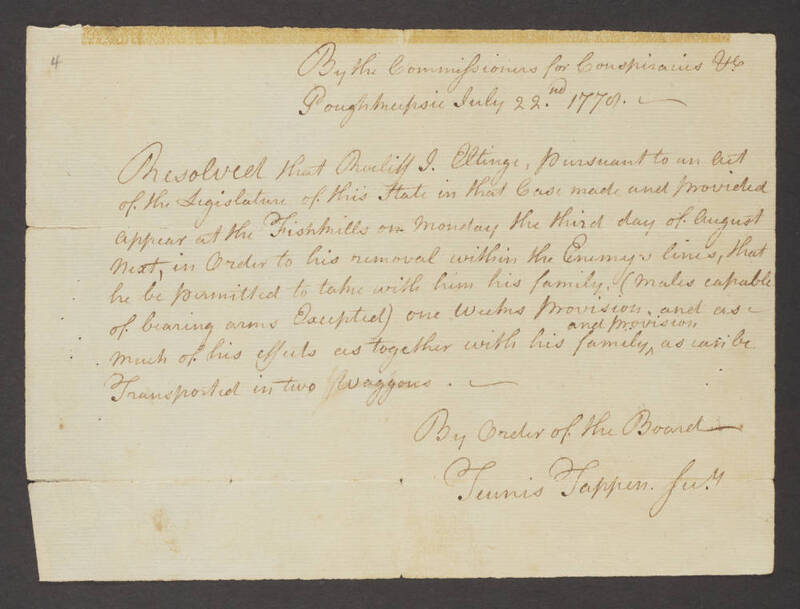 4
By the Commissioners for Conspiracies &c
Poughkeepsie July 22.nd 1778.
Resolved that Roeliff J. Eltinge, pursuant to an act
of the Legislature of this State in that Case made and provided
appear at the Fishkills on Monday the third day of August
Next, in Order to his removal within the Enemys lines, that
he be permitted to take with him his family, (males capable
of bearing arms Excepted) one weeks provision, and as
much of his effects as together with his family, and provision as can be
Transported in two Waggons.
By Order of the Board
Teunis Tappen. Secy